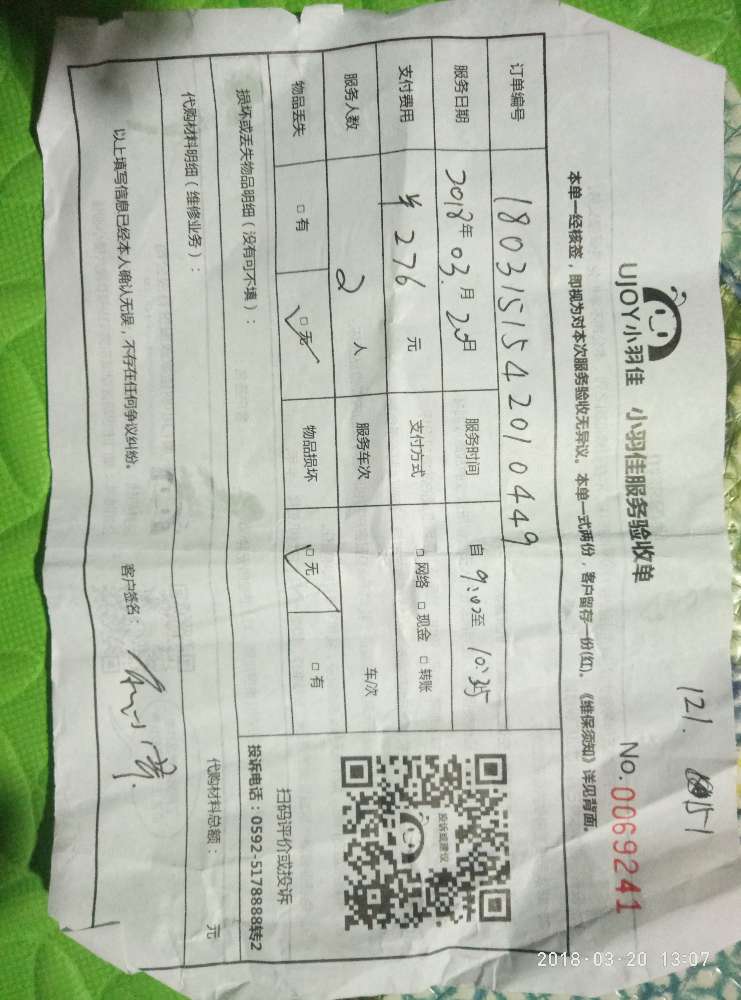 121.
151
UJOY小羽佳 小羽佳服务验收单
No.0069241
本单一经核签，即视为对本次服务验收无异议。本单一式两份，客户留存一份(红)。《维保须知》详见背面。
订单编号 1803151542010449
服务日期 2018年03月20日 服务时间 自 9:00至 10:35
支付费用 ¥276 元 支付方式 □网络 □现金 □转账
服务人数 2 人 服务车次 车/次
物品丢失 □有 □无 物品损坏 □无 □有
损坏或丢失物品明细（没有可不填）：
代购材料明细（维修业务）：
代购材料总额： 元
以上填写信息已经本人确认无误，不存在任何争议纠纷。
客户签名：
投诉或建议
扫码评价或投诉
投诉电话：0592-5178888转2
2018-03-20 13:07